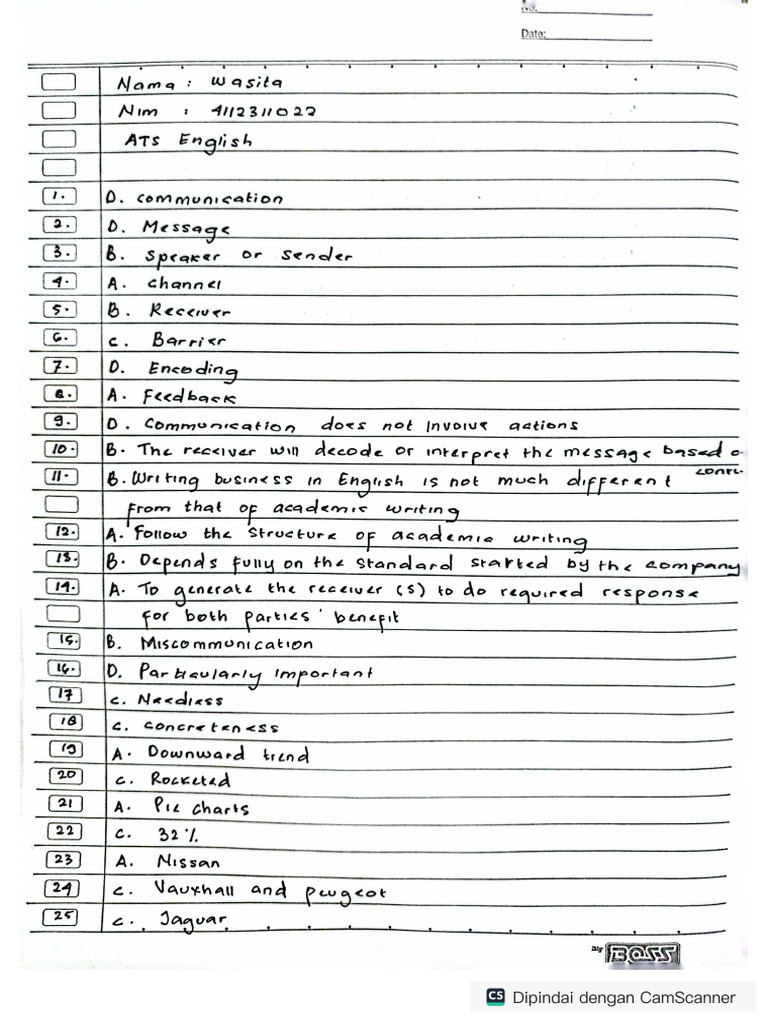 No.
Date:
Nama : Wasita
Nim : 4112311022
ATS English
1. D. communication
2. D. Message
3. B. Speaker or Sender
4. A. channel
5. B. Receiver
6. C. Barrier
7. D. Encoding
8. A. Feedback
9. D. Communication does not Involve actions
10. B. The receiver will decode or interpret the message based o
contr.
11. B. Writing business in English is not much different
from that of academic writing
12. A. Follow the structure of academic writing
13. B. Depends fully on the standard started by the company
14. A. To generate the receiver (s) to do required response
for both parties' benefit
15. B. Miscommunication
16. D. Particularly important
17 C. Needless
18 C. concreteness
19 A. Downward trend
20 C. Rocketed
21 A. Pie charts
22 C. 32%
23 A. Nissan
24 C. Vauxhall and peugeot
25 C. Jaguar
BOSS
CS Dipindai dengan CamScanner